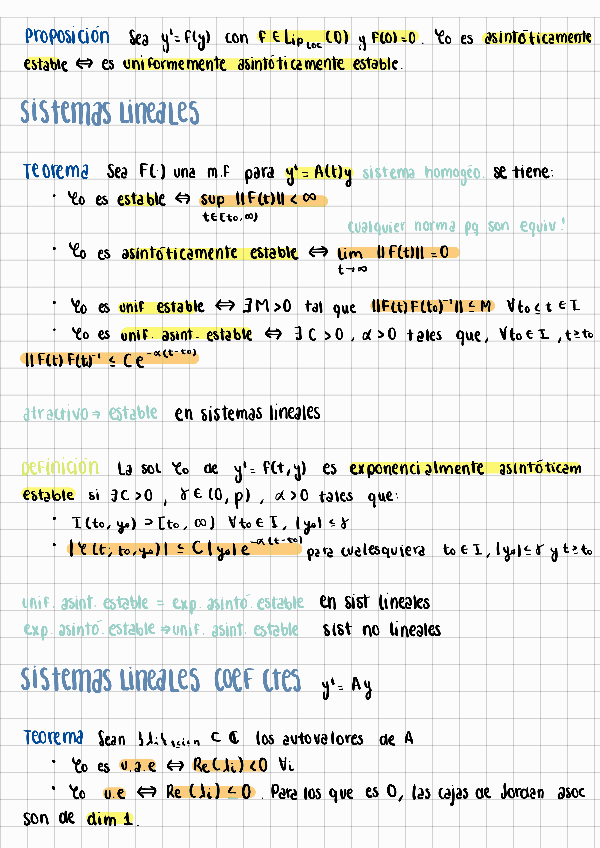 Proposición Sea y' = f(y) con f ∈ Lip_loc(O) y f(0)=0. φ₀ es asintóticamente
estable ⇔ es uniformemente asintóticamente estable.
Sistemas lineales
Teorema Sea F(·) una m.f para y' = A(t)y sistema homogéo. se tiene:
· φ₀ es estable ⇔ sup ||F(t)|| < ∞
t∈[t₀,∞)
cualquier norma pq son equiv!
· φ₀ es asintóticamente estable ⇔ lim ||F(t)|| = 0
t→∞
· φ₀ es unif estable ⇔ ∃M>0 tal que ||F(t)F(t₀)⁻¹|| ≤ M ∀t₀ ≤ t ∈ I
· φ₀ es unif. asint. estable ⇔ ∃C>0, α>0 tales que, ∀t₀ ∈ I, t≥t₀
||F(t)F(t₀)⁻¹ ≤ Ce^{-α(t-t₀)}
atractivo ⇒ estable en sistemas lineales
Definición La sol φ₀ de y' = f(t,y) es exponencialmente asintóticam
estable si ∃C>0, γ∈(0,ρ), α>0 tales que:
· I(t₀,y₀) ⊃ [t₀,∞) ∀t₀∈I, |y₀| ≤ γ
· |φ(t; t₀,y₀)| ≤ C|y₀|e^{-α(t-t₀)} para cualesquiera t₀∈I, |y₀|≤γ y t≥t₀
unif. asint. estable = exp. asintó. estable en sist lineales
exp. asintó. estable ⇒ unif. asint. estable sist no lineales
Sistemas lineales coef ctes y' = Ay
Teorema Sean ⊂ ℂ los autovalores de A
· φ₀ es u.a.e ⇔ Re(λi)<0 ∀i
· φ₀ u.e ⇔ Re(λi) ≤ 0. Para los que es 0, las cajas de Jordan asoc
son de dim 1.